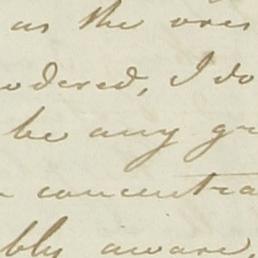 as the ores
wdered, I do
be any gr
concentra
bly aware,